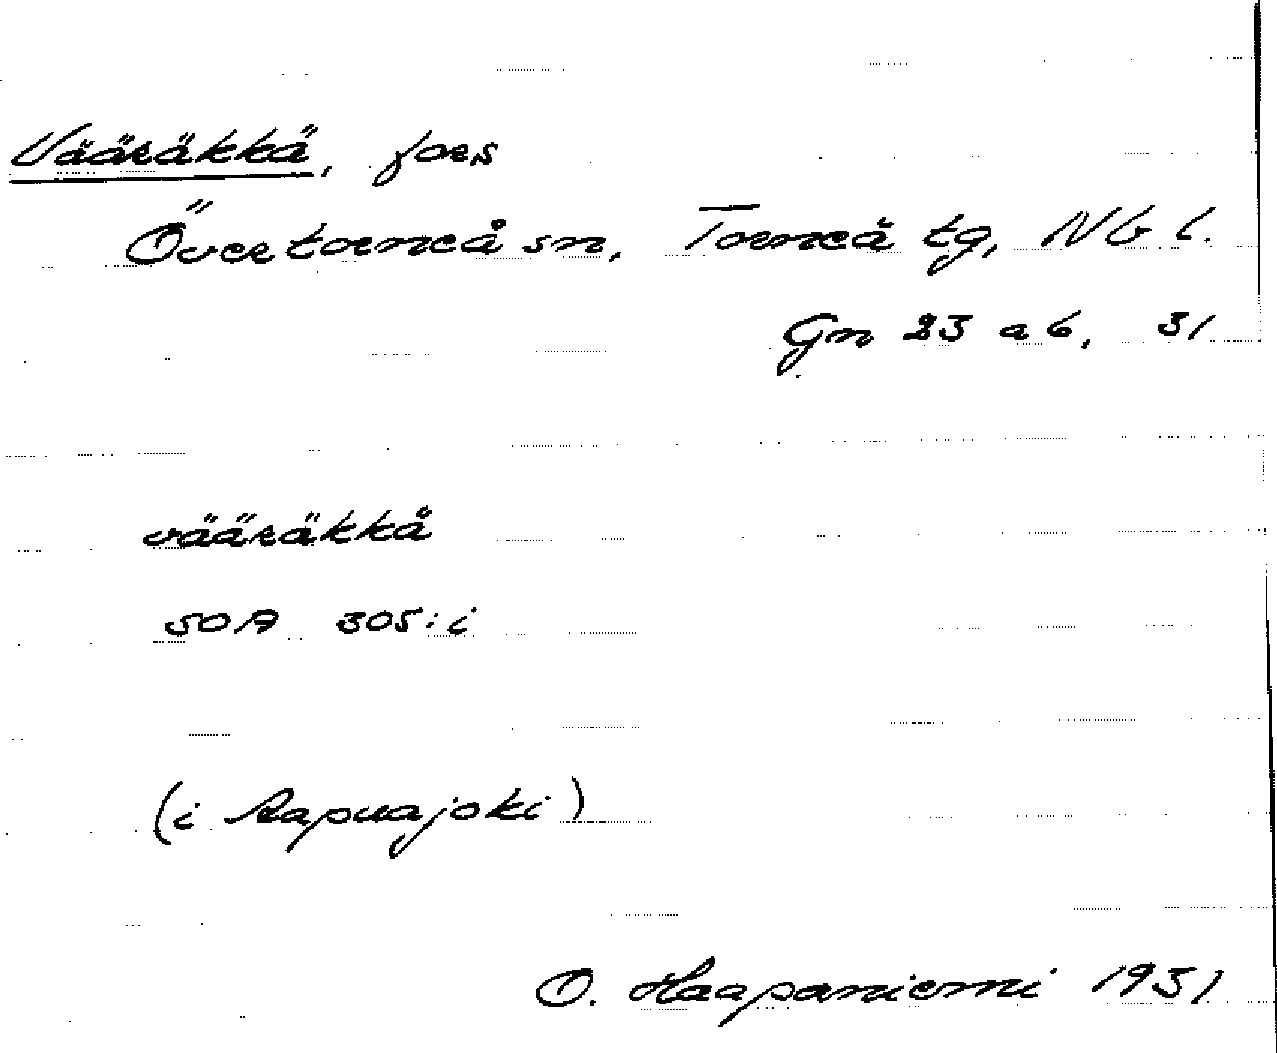 Vääräkkä, fors
Övertorneå sn, Torneå tg, Nb l.
Gn 23 a b, 31
vääräkkä
SOA 305:i
(i Aapuajoki)
O. Haapaniemi 1931